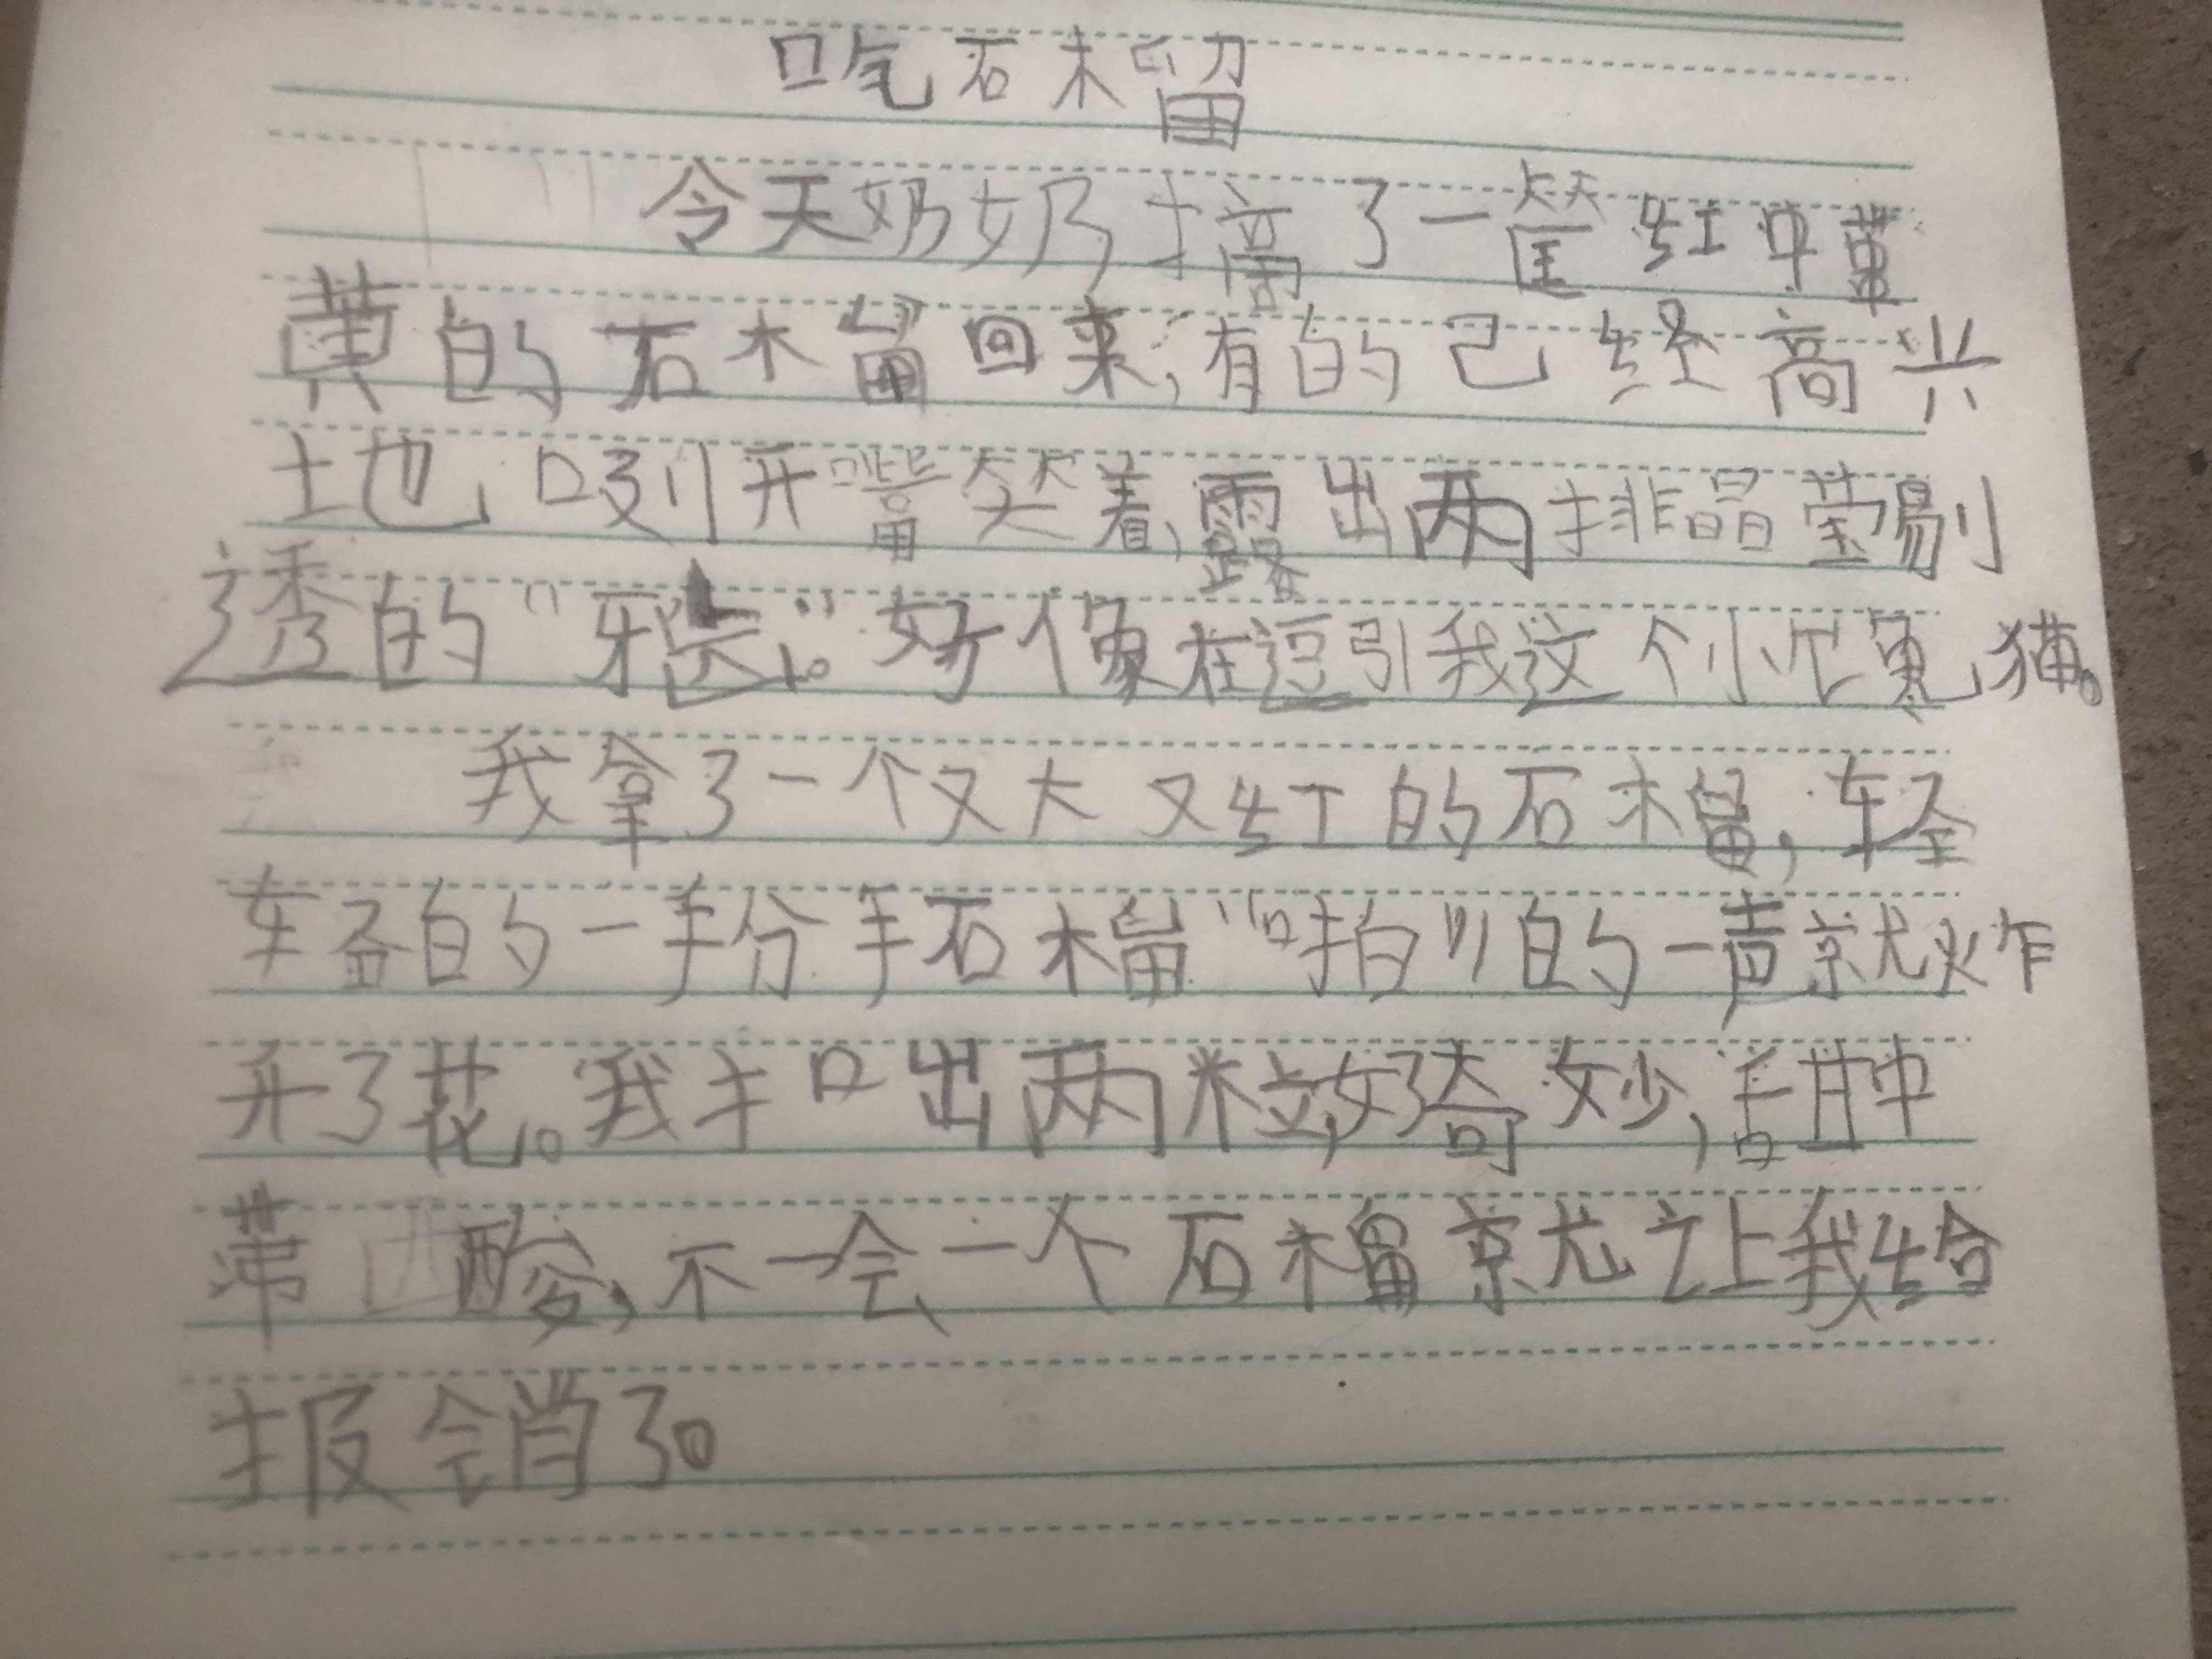 吃石榴
今天奶奶摘了一筐红中带
黄的石榴回来,有的已经高兴
地咧开嘴笑着,露出两排晶莹剔
透的“牙齿。”好像在逗引我这个小馋猫。
我拿了一个又大又红的石榴,轻
轻的一掰石榴“啪”的一声就炸
开了花。我扣出两粒,好奇妙,甜中
带酸,不一会一个石榴就让我给
报销了。